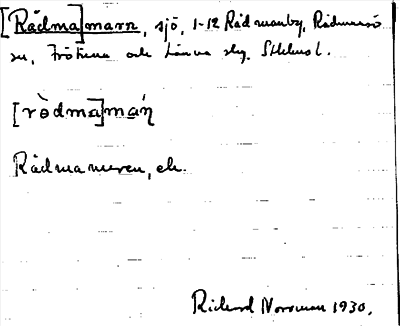 [Rådma]mann, sjö, 1-12 Rådmanby, Rådmansö
sn, Frötuna och Länna slg. Sthlms l.
[rò̀dma]mań
Rådmamaren, ek.
Rickard Norrman 1930.